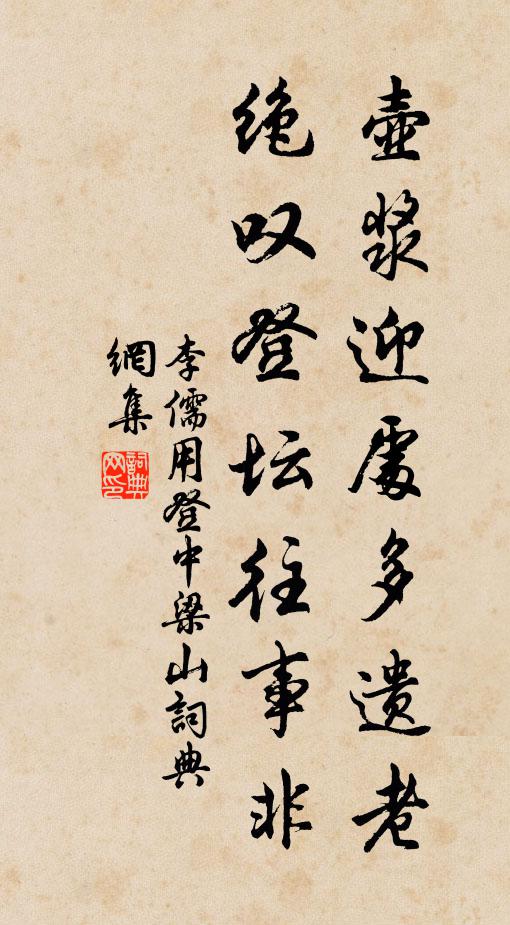 壶浆迎處多遗老
绝叹登坛往事非
李儒用登中梁山詞典
網集
詞典網印